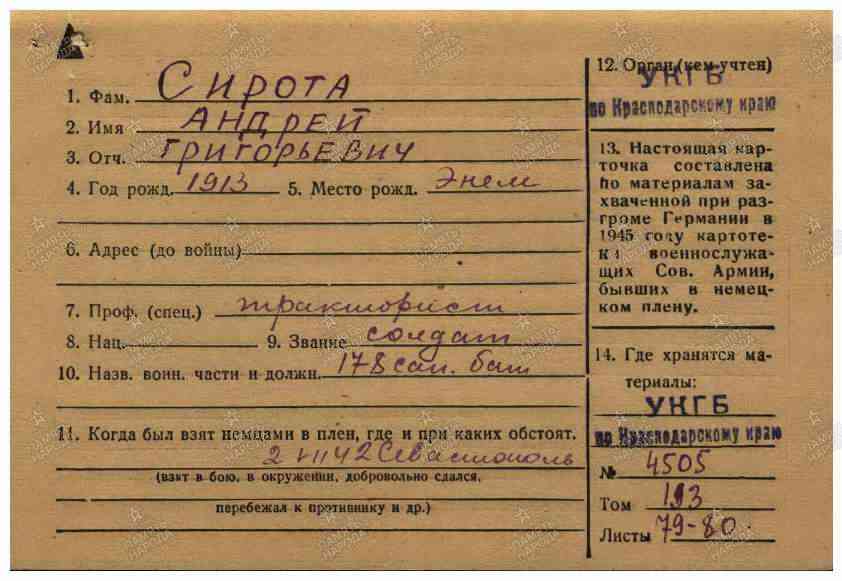 1. Фам. СИРОТА
2. Имя АНДРЕЙ
3. Отч. ГРИГОРЬЕВИЧ
4. Год рожд. 1913 5. Место рожд. Энем
6. Адрес (до войны)
7. Проф. (спец.) тракторист
8. Нац. 9. Звание солдат
10. Назв. воин. части и должн. 178 сап. бат
11. Когда был взят немцами в плен, где и при каких обстоят.
42 Севастополь
(взят в бою, в окружении, добровольно сдался,
перебежал к противнику и др.)
12. Орган (кем учтен)
УКГБ
по Краснодарскому краю
13. Настоящая кар-
точка составлена
по материалам за-
хваченной при раз-
громе Германии в
1945 году картоте-
ки военнослужа-
щих Сов. Армии,
бывших в немец-
ком плену.
14. Где хранятся ма-
териалы:
УКГБ
по Краснодарскому краю
№ 4505
Том 193
Листы 79-80
ПАМЯТЬ
НАРОДА